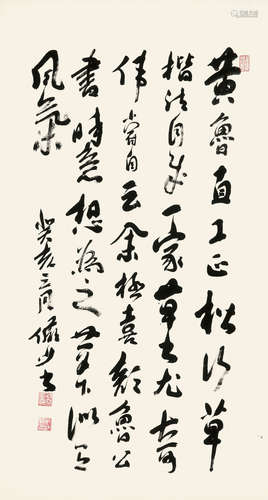 黄鲁直工正楷行草
楷法自成一家草书尤奇
伟尝自云余极喜颜鲁公
书时意想为之笔下似有
风气
癸亥三月
书